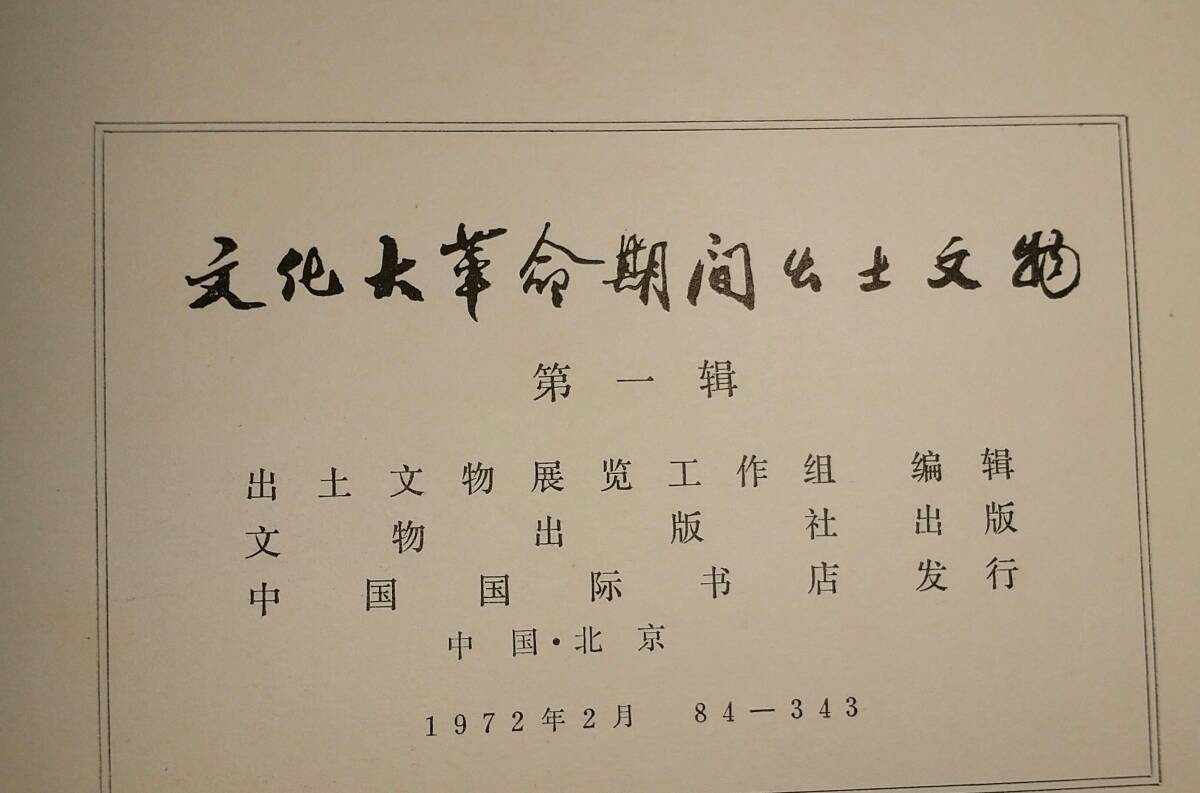 文化大革命期间出土文物
第一辑
出土文物展览工作组 编辑
文物出版社出版
中国国际书店发行
中国·北京
1972年2月 84—343